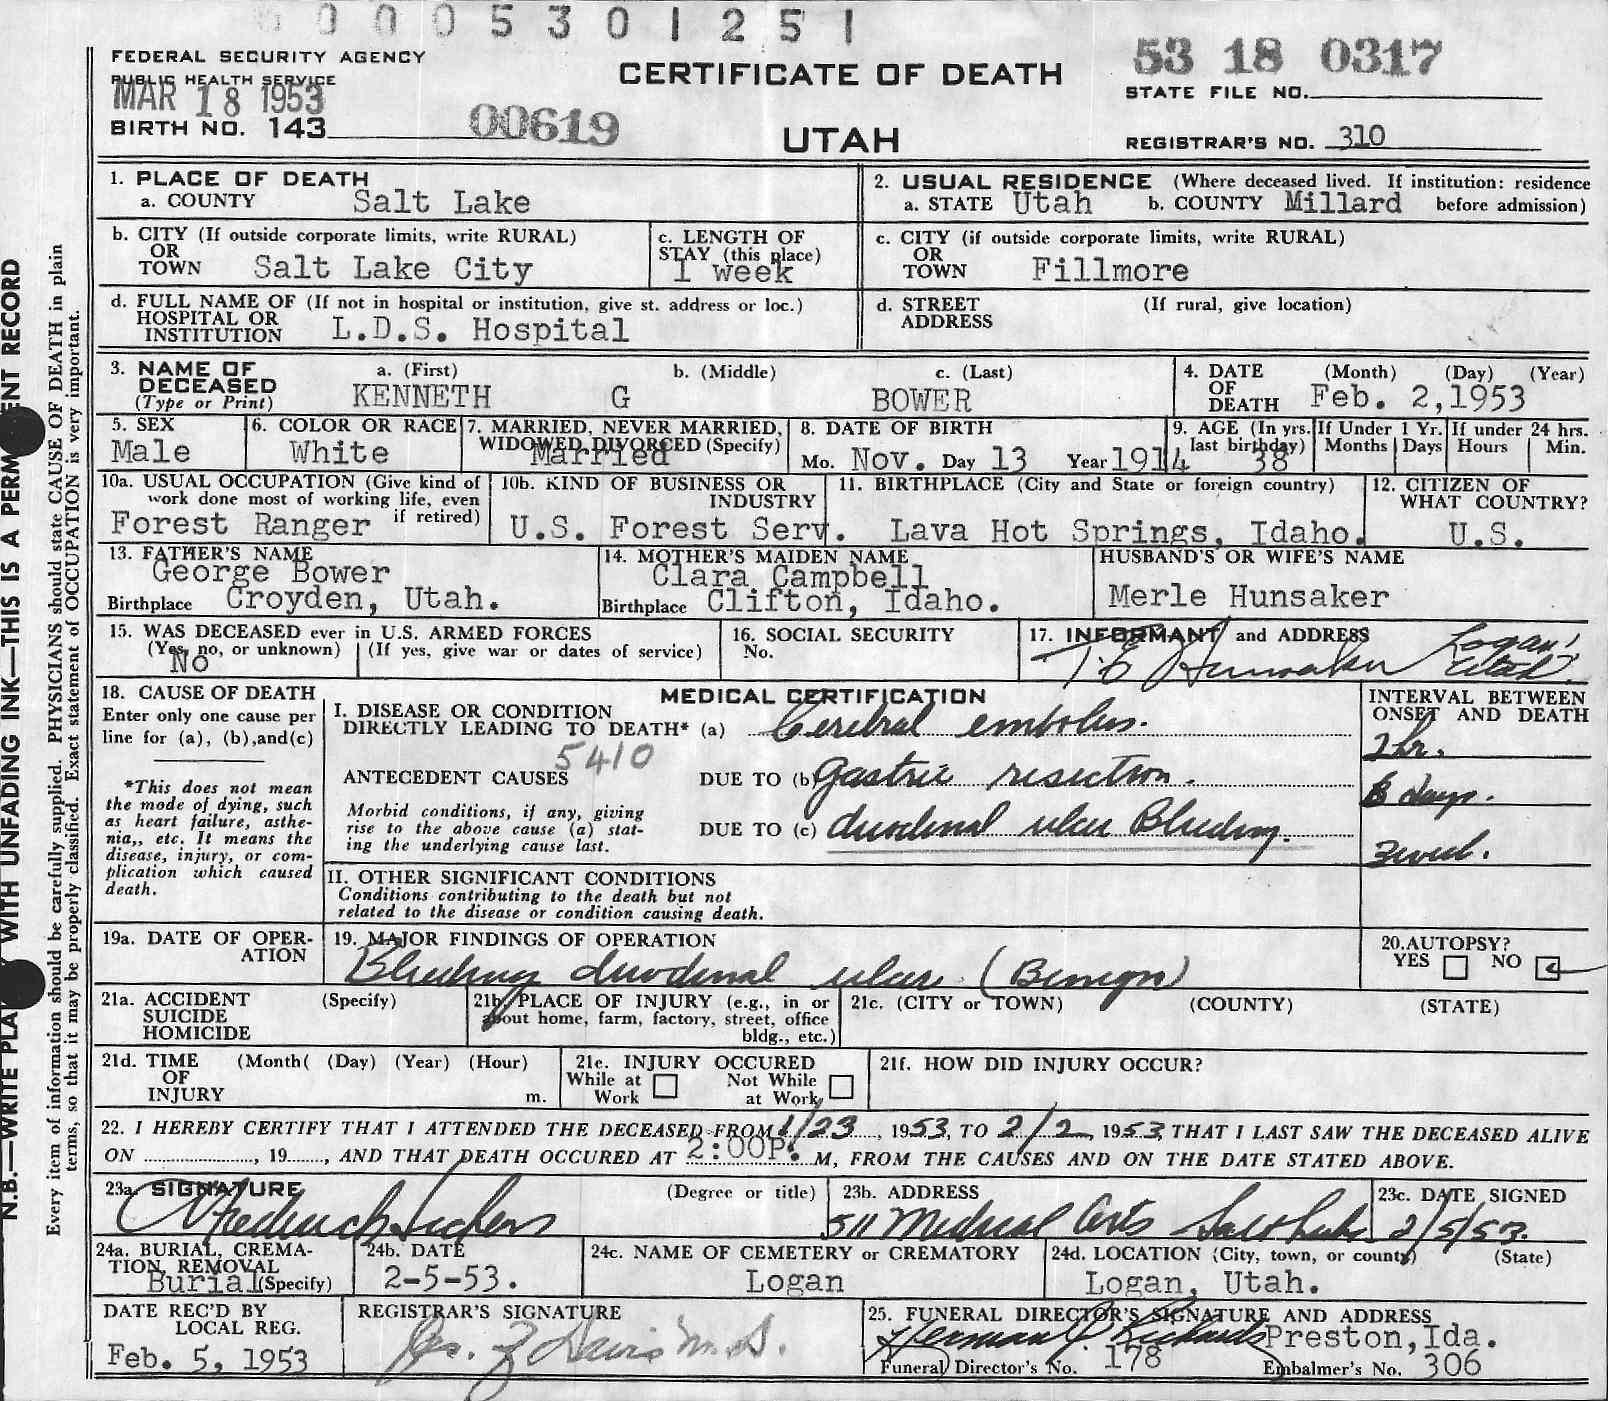 0 0 0 5 3 0 1 2 5 1
FEDERAL SECURITY AGENCY
PUBLIC HEALTH SERVICE
MAR 18 1953
BIRTH NO. 143
00619
CERTIFICATE OF DEATH
UTAH
53 18 0317
STATE FILE NO.
REGISTRAR'S NO. 310
N.B.—WRITE PLA WITH UNFADING INK—THIS IS A PERM ENT RECORD
Every item of information should be carefully supplied. PHYSICIANS should state CAUSE OF DEATH in plain
terms, so that it may be properly classified. Exact statement of OCCUPATION is very important.
1. PLACE OF DEATH
a. COUNTY Salt Lake
2. USUAL RESIDENCE (Where deceased lived. If institution: residence
a. STATE Utah b. COUNTY Millard before admission)
b. CITY (If outside corporate limits, write RURAL)
OR
TOWN Salt Lake City
c. LENGTH OF
STAY (this place)
1 week
c. CITY (if outside corporate limits, write RURAL)
OR
TOWN Fillmore
d. FULL NAME OF (If not in hospital or institution, give st. address or loc.)
HOSPITAL OR
INSTITUTION L.D.S. Hospital
d. STREET (If rural, give location)
ADDRESS
3. NAME OF DECEASED
(Type or Print)
a. (First) b. (Middle) c. (Last)
KENNETH G BOWER
4. DATE OF DEATH
(Month) (Day) (Year)
Feb. 2,1953
5. SEX
Male
6. COLOR OR RACE
White
7. MARRIED, NEVER MARRIED,
WIDOWED, DIVORCED (Specify)
Married
8. DATE OF BIRTH
Mo. Nov. Day 13 Year 1914
9. AGE (In yrs. last birthday)
38
If Under 1 Yr.
Months Days
If under 24 hrs.
Hours Min.
10a. USUAL OCCUPATION (Give kind of
work done most of working life, even
if retired)
Forest Ranger
10b. KIND OF BUSINESS OR
INDUSTRY
U.S. Forest Serv.
11. BIRTHPLACE (City and State or foreign country)
Lava Hot Springs, Idaho.
12. CITIZEN OF
WHAT COUNTRY?
U.S.
13. FATHER'S NAME
George Bower
Birthplace Croyden, Utah.
14. MOTHER'S MAIDEN NAME
Clara Campbell
Birthplace Clifton, Idaho.
HUSBAND'S OR WIFE'S NAME
Merle Hunsaker
15. WAS DECEASED ever in U.S. ARMED FORCES
(Yes, no, or unknown) (If yes, give war or dates of service)
No
16. SOCIAL SECURITY
No.
17. INFORMANT and ADDRESS
Hunsaker Logan, Utah
18. CAUSE OF DEATH
Enter only one cause per
line for (a), (b),and(c)
*This does not mean
the mode of dying, such
as heart failure, asthe-
nia,, etc. It means the
disease, injury, or com-
plication which caused
death.
MEDICAL CERTIFICATION
I. DISEASE OR CONDITION
DIRECTLY LEADING TO DEATH* (a) Cerebral embolus.
5410
ANTECEDENT CAUSES
DUE TO (b) Gastric resection.
Morbid conditions, if any, giving
rise to the above cause (a) stat-
ing the underlying cause last.
DUE TO (c) duodenal ulcer Bleeding.
INTERVAL BETWEEN
ONSET AND DEATH
hr.
days.
II. OTHER SIGNIFICANT CONDITIONS
Conditions contributing to the death but not
related to the disease or condition causing death.
19a. DATE OF OPER-
ATION
19. MAJOR FINDINGS OF OPERATION
Bleeding duodenal ulcer (Benign)
20.AUTOPSY?
YES NO
21a. ACCIDENT (Specify)
SUICIDE
HOMICIDE
21b. PLACE OF INJURY (e.g., in or
about home, farm, factory, street, office
bldg., etc.)
21c. (CITY or TOWN) (COUNTY) (STATE)
21d. TIME (Month( (Day) (Year) (Hour)
OF
INJURY m.
21e. INJURY OCCURED
While at Work Not While at Work
21f. HOW DID INJURY OCCUR?
22. I HEREBY CERTIFY THAT I ATTENDED THE DECEASED FROM 1/23, 1953, TO 2/2, 1953, THAT I LAST SAW THE DECEASED ALIVE
ON , 19 , AND THAT DEATH OCCURED AT 2:00P. M, FROM THE CAUSES AND ON THE DATE STATED ABOVE.
23a. SIGNATURE (Degree or title)
23b. ADDRESS
511 Medical Arts Salt Lake
23c. DATE SIGNED
2/5/53.
24a. BURIAL, CREMA-
TION, REMOVAL
Burial (Specify)
24b. DATE
2-5-53.
24c. NAME OF CEMETERY or CREMATORY
Logan
24d. LOCATION (City, town, or county) (State)
Logan, Utah.
DATE REC'D BY
LOCAL REG.
Feb. 5, 1953
REGISTRAR'S SIGNATURE
Davis M.D.
25. FUNERAL DIRECTOR'S SIGNATURE AND ADDRESS
Herman J. Richards Preston,Ida.
Funeral Director's No. 178 Embalmer's No. 306